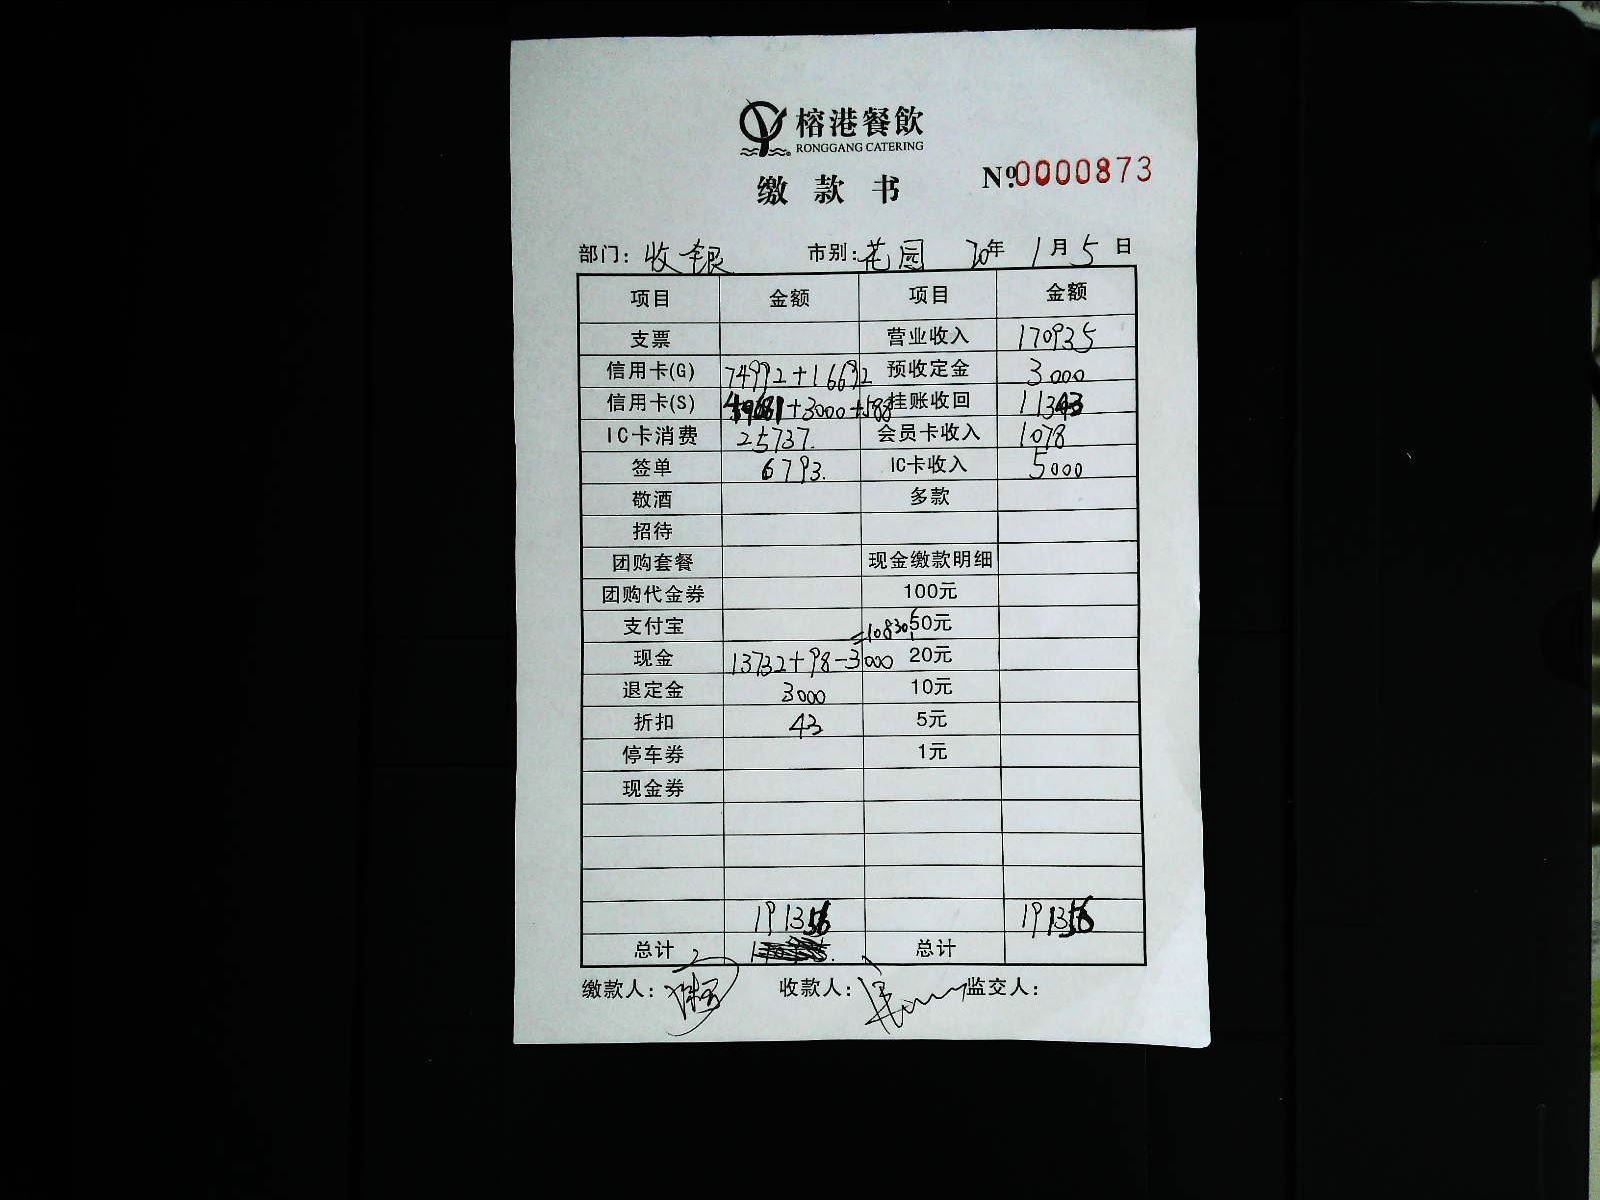 榕港餐飲
RONGGANG CATERING
缴款书
№0000873
部门：收银 市别：花园 20年 1月 5日
项目 金额 项目 金额
支票 营业收入 170935
信用卡(G) 74992+16692 预收定金 3000
信用卡(S) +3000+588 挂账收回 11343
IC卡消费 25737. 会员卡收入 1078
签单 6793. IC卡收入 5000
敬酒 多款
招待
团购套餐 现金缴款明细
团购代金券 100元
支付宝 =10830 50元
现金 13732+98-3000 20元
退定金 3000 10元
折扣 43 5元
停车券 1元
现金券
191356 191356
总计 总计
缴款人： 收款人： 监交人：